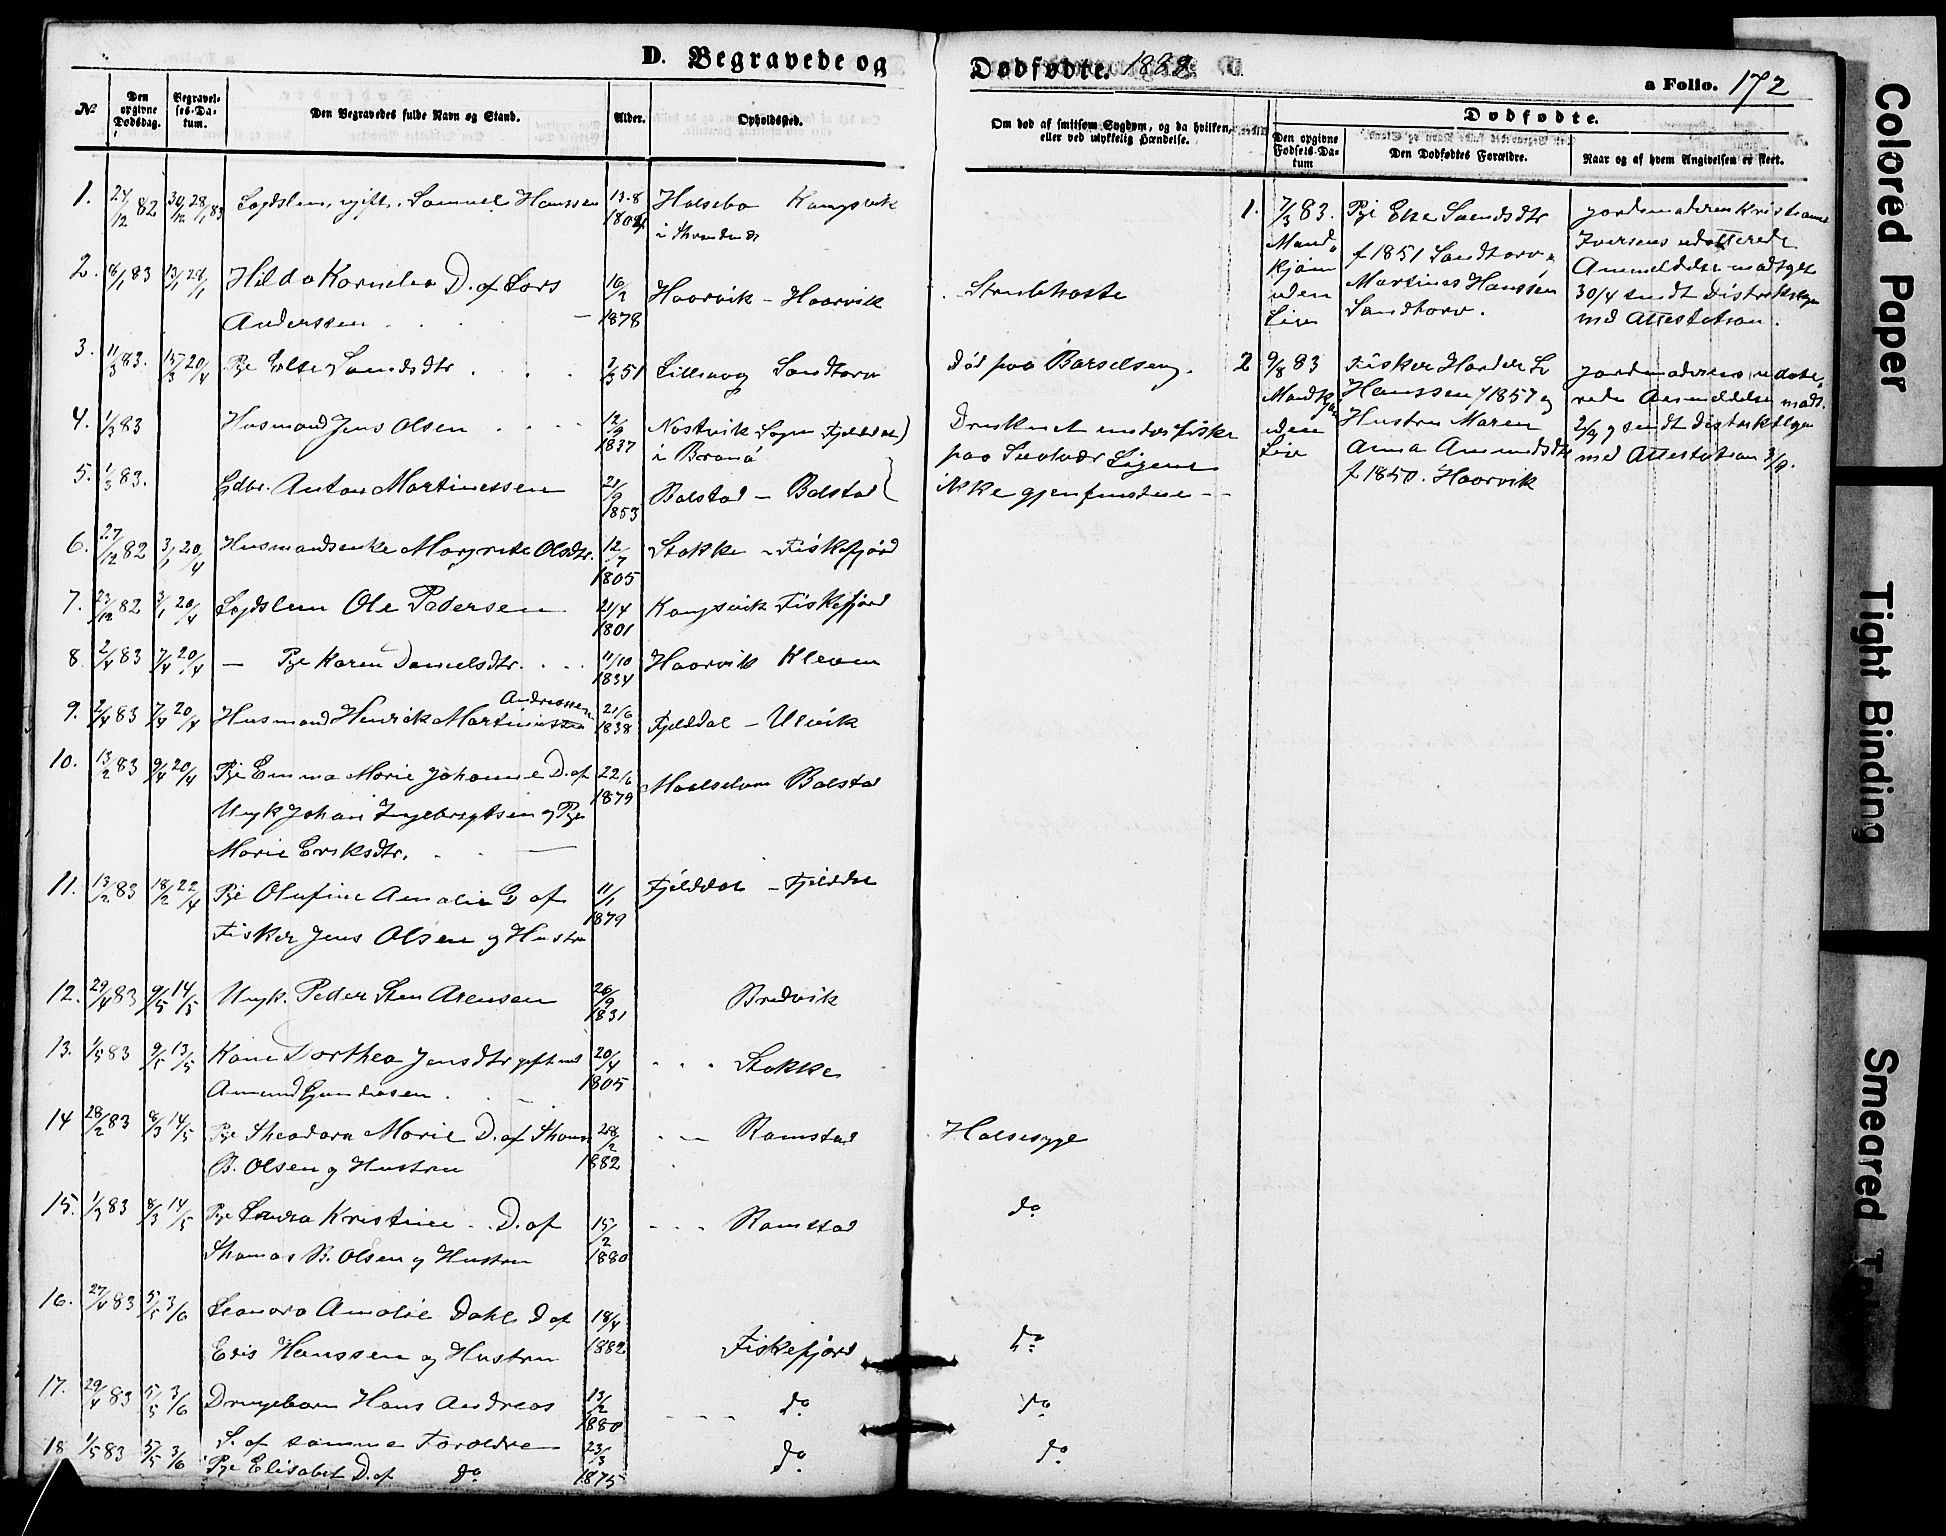 D. Begravede og
Dødfødte. 1883.
a Folio. 172
No
Den opgivne Dødsdag.
Begravelses-Datum.
Den Begravedes fulde Navn og Stand.
Alder.
Opholdssted.
Om død af smitsom Sygdom, og da hvilken,
eller ved ulykkelig Hændelse.
Dødfødte.
Den opgivne Fødsels-Datum
Den Dødfødtes Forældre.
Naar og af hvem Angivelsen er skeet.
1. 24/12 82 30/12 28/1 83 Lægdslem, gift, Samuel Hanssen 13.8 1804 Halsebø Kongsvik
i Throndenæs
2. 8/1 83 13/1 28/1 Hilda Kornelia D. af Lars 16/2 Haarvik - Haarvik Strubehoste
Anderssen 1878
3. 11/3 83. 15/3 20/4 Pge Else Svendsdtr 2/3 51 Sandtorv Død paa Barselseng.
4. 1/3 83 Husmand Jens Olsen 12/9 1837 Fjelddal Druknet under fiske
5. 1/3 83. Anton Martinessen 21/9 853 Balstad - Balstad paa Ligene
ikke gjenfundne
6. 27/12 82 3/1 20/4 Husmandsenke Margrete Olsdtr. 12/7 1805 Stokke - Fiskefjord
7. 23/12 82 3/1 20/4 Lægdslem Ole Pedersen 21/4 1801 Kongsvik Fiskefjord
8. 2/4 83 7/4 20/4 - Pge Karen Danielsdtr. 11/10 1834 Haarvik Kleven
Andreassen
9. 2/4 83 7/4 20/4 Husmand Henrik Martinussen 21/6 1838 Fjelddal - Ulvik
10. 13/2 83 9/4 20/4 Pge Emma Marie Johanne D. af 22/6 1879 Balstad
Ungk Johan Ingebrigtsen og Pge
Marie Eriksdtr.
11. 13/2 83 18/2 22/4 Pge Olufine Amalie D af 11/1 1879 Fjelddal - Fjelddal
Fisker Jens Olsen og Hustru
12. 29/4 83 9/5 14/5 Ungk. Peder Sten Arensen 26/9 1831 Bredvik
13. 1/5 83 9/5 13/5 Kone Dorthea Jensdtr gift med 20/4 1805 Stokke
Amund
14 28/2 83 8/3 14/5 Pge Theodora Marie D. af Thomas 28/2 1882 Ramstad Halsesyge
B. Olsen og Hustru
15. 1/3 83 8/3 14/5 Pge Laura Kristine D. af 15/2 1880 Ramstad do
Thomas B. Olsen og Hustru
16. 27/4 83 5/5 3/6 Leonora Amalie Dahl D af 18/4 1882 Fiskefjord do
Edis Hanssen og Hustru
17. 29/4 83 5/5 3/6 Drengebarn Hans Andreas 13/2 1880 do do
S. af samme Forældre
18 1/5 83 5/5 3/6 Pge Elisabet D. af do 23/3 1875 do do
1. 7/3 83. Pge Else Svendsdtr Jordemoderen Kristianne
Mand- f 1851 Sandtorv, Iversens udaterede
kjøn Martines Hanssen Anmeldelse modtget
uden Sandtorv. 30/4 sendt Distriktslægen
Liv med Attestation.
2 9/8 83 Fisker Hanssen f 1857 og Jordmoderens udate-
Mandkjøn Hustru Maren rede Anmeldelse modt.
uden Anna Amundsdtr 2/9 og sendt Distriktslægen
Liv f 1850. Haarvik med Attestation 3/9.
Colored Paper
Tight Binding
Smeared